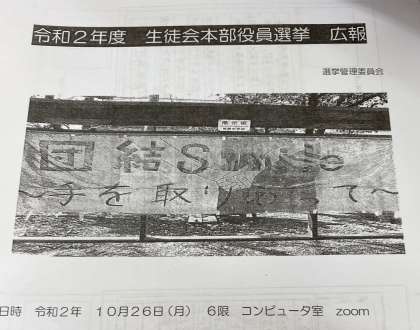 令和2年度　生徒会本部役員選挙　広報
選挙管理委員会
団結Smile
～手を取りあって～
日時　令和2年　10月26日(月)　6限　コンピュータ室　zoom